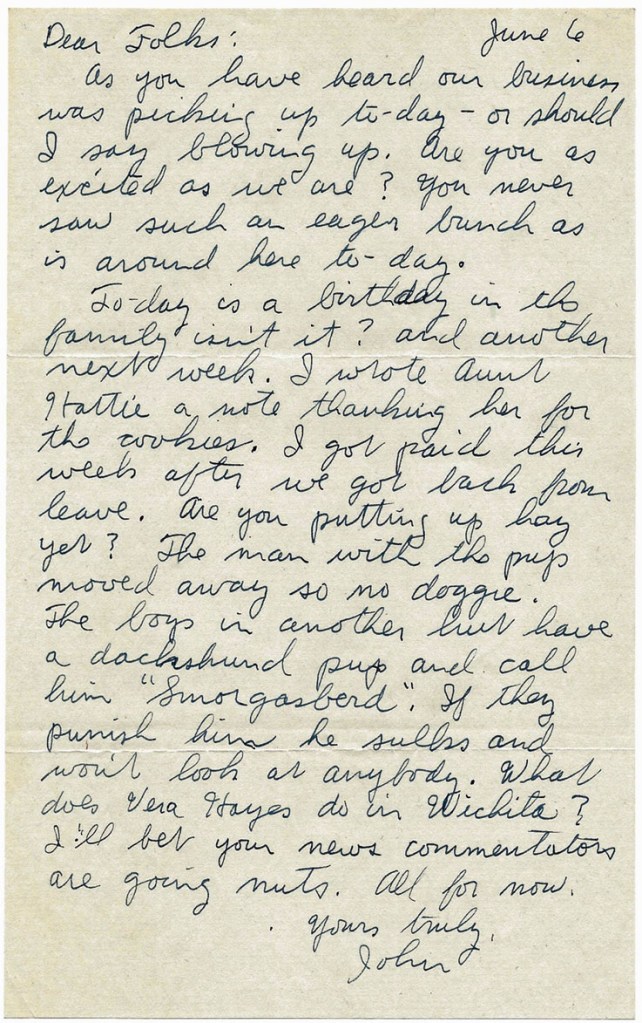 Dear Folks: June 6
As you have heard our business
was picking up to-day - or should
I say blowing up. Are you as
excited as we are? You never
saw such an eager bunch as
is around here to-day.
To-day is a birthday in the
family isn't it? and another
next week. I wrote Aunt
Hattie a note thanking her for
the cookies. I got paid this
week after we got back from
leave. Are you putting up hay
yet? The man with the pup
moved away so no doggie.
The boys in another hut have
a dachshund pup and call
him "Smorgasberd". If they
punish him he sulks and
won't look at anybody. What
does Vera Hayes do in Wichita?
I'll bet your news commentators
are going nuts. All for now.
Yours truly,
John